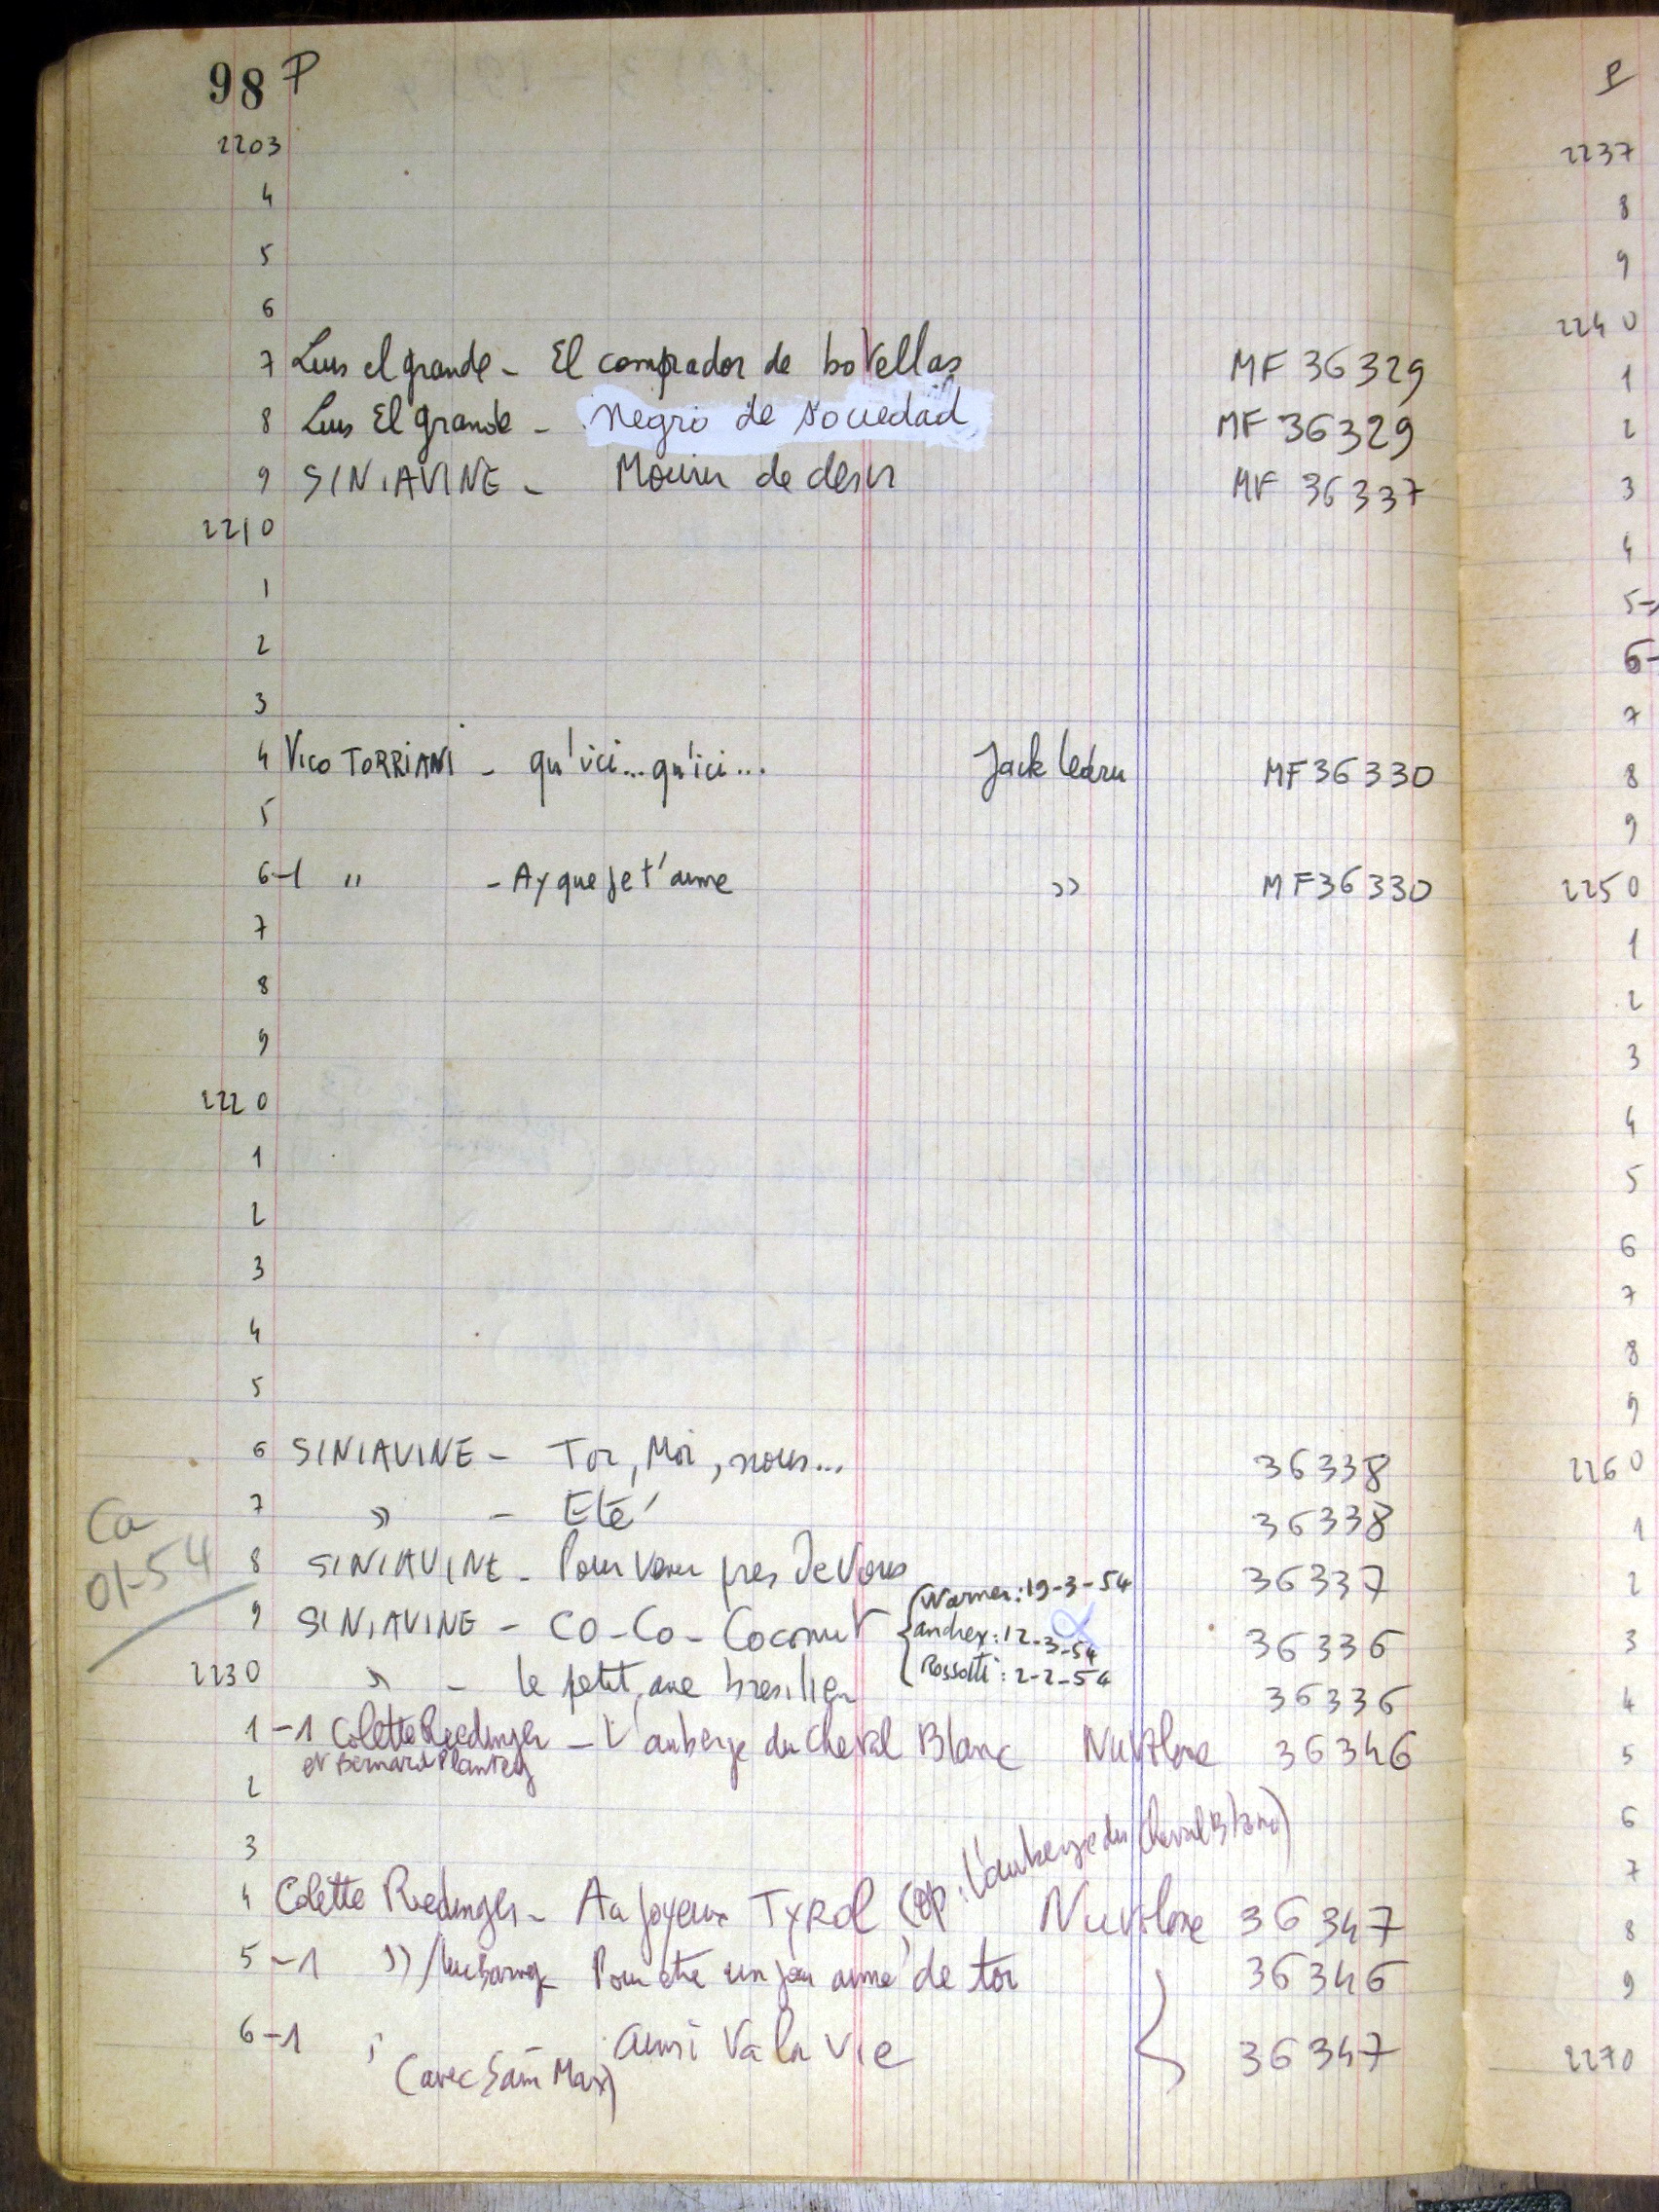 98 P
2203
4
5
6
7 Luis el grande - El comprador de botellas MF 36329
8 Luis El grande - Negro de Sociedad MF 36329
9 SINIAVINE - Mourir de desir MF 36337
2210
1
2
3
4 Vico TORRIANI - qu'ici... qu'ici... Jack Ledru MF 36330
5
6-1 " - Ay que je t'aime " MF 36330
7
8
9
2220
1
2
3
4
5
6 SINIAVINE - Toi, Moi, nous... 36338
7 " - Eté 36338
Ca
01-54
8 SINIAVINE - Pour venir pres de Vous 36337
9 SINIAVINE - CO-CO-Coconut 36336
Warner: 19-3-54
andrex: 12-3-54
Rossotti: 2-2-54
2230 " - le petit ane bresilien 36336
1-1 Colette Riedinger - L'auberge du Cheval Blanc 36346
et Bernard Plantey
2
3
4 Colette Riedinger - Au joyeux TYROL (op: l'auberge du Cheval Blanc) 36347
5-1 " Pour etre un jour aimé de toi 36346
6-1 " ainsi Va la Vie 36347
(avec Sam Max)
P
2237
8
9
2240
1
2
3
4
5-
6-
7
8
9
2250
1
2
3
4
5
6
7
8
9
2260
1
2
3
4
5
6
7
8
9
2270